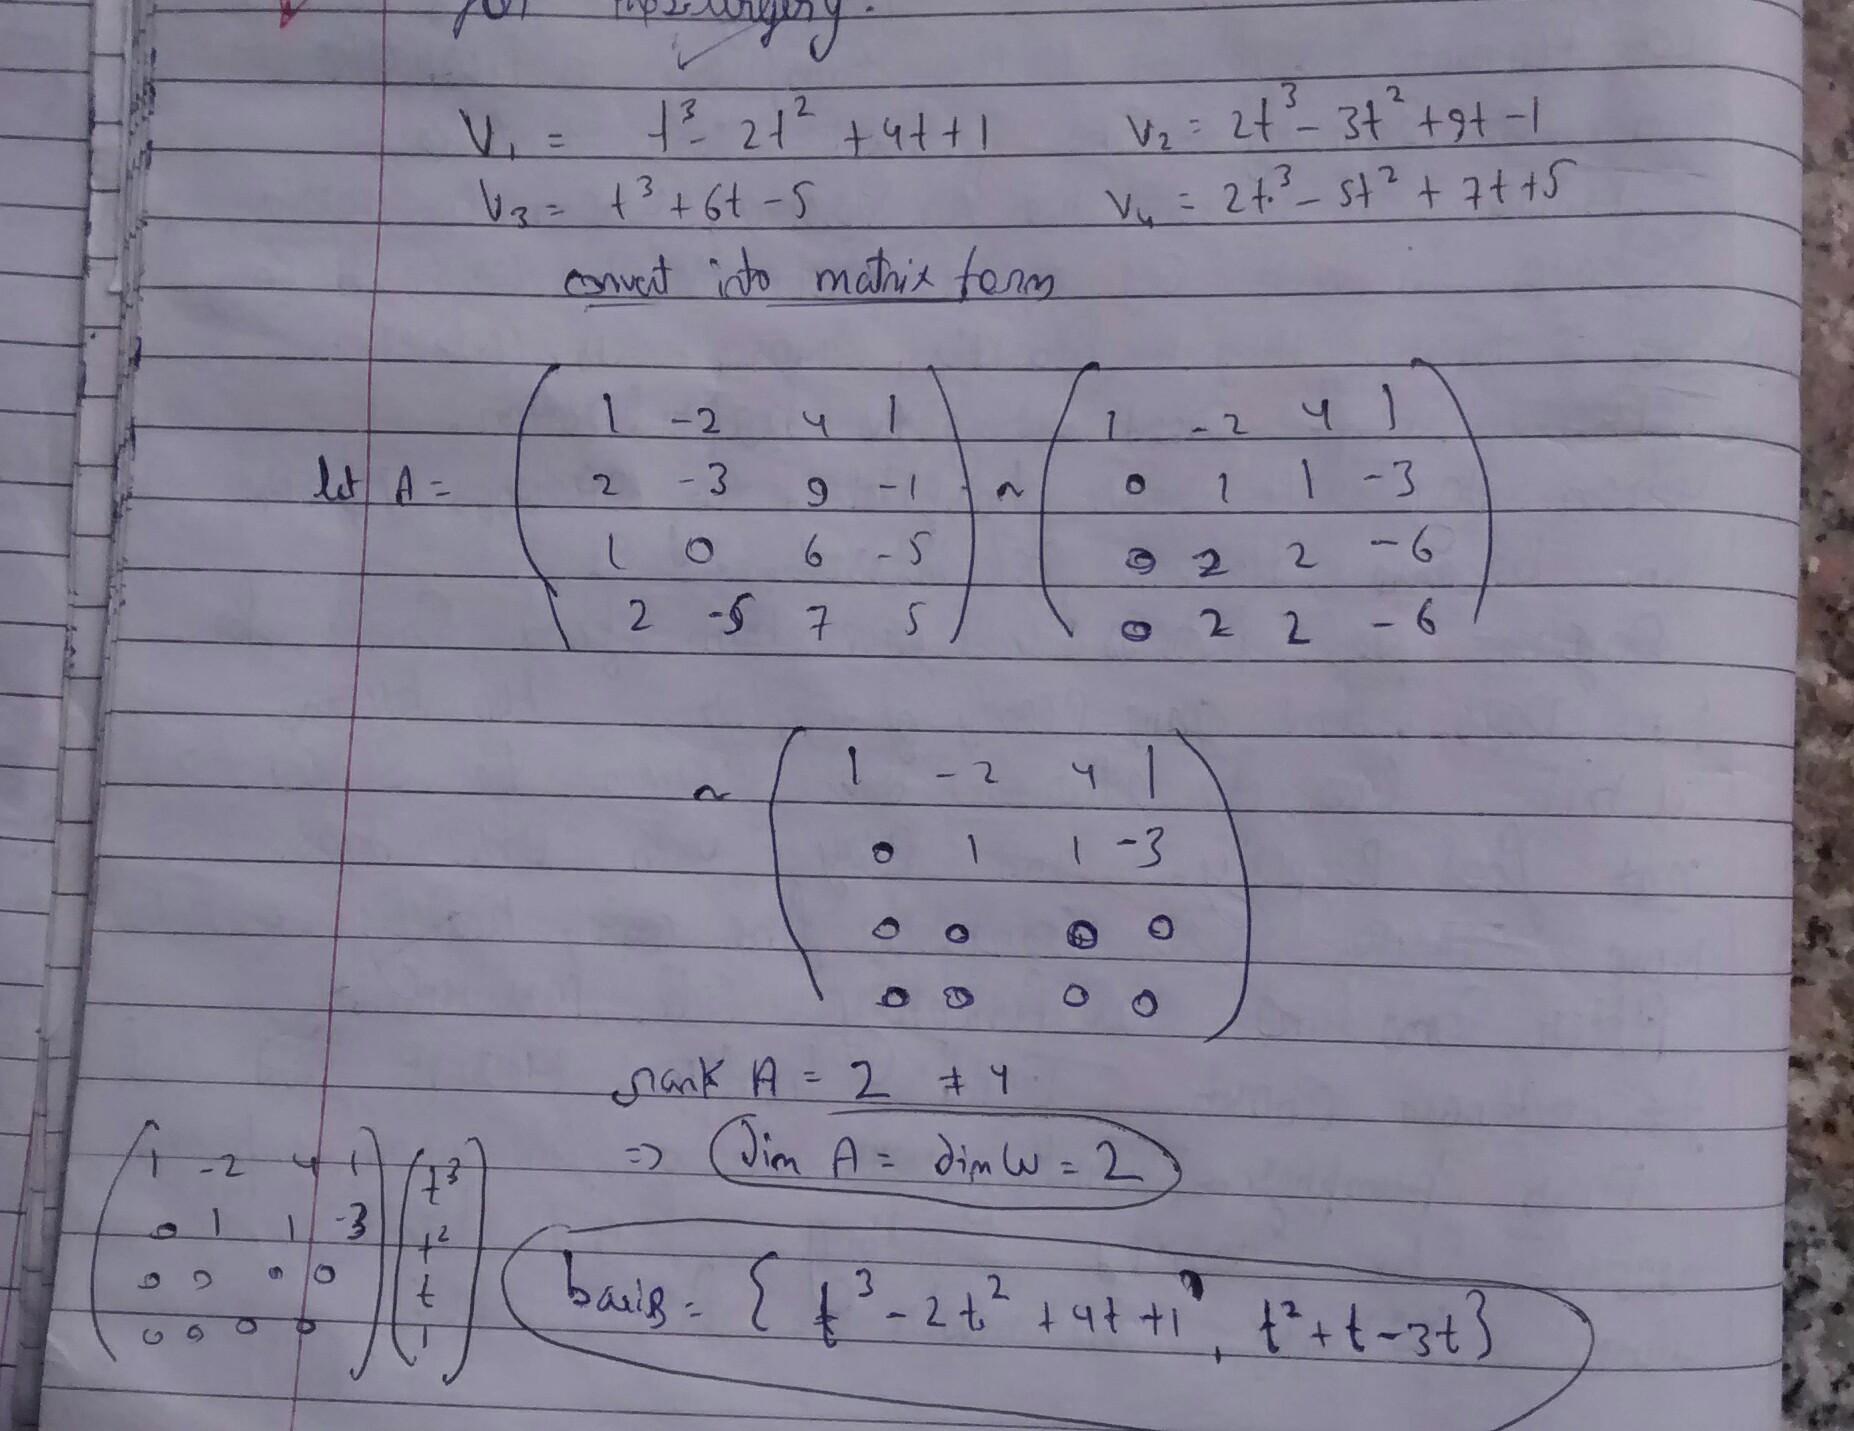 for
V₁ = t³ - 2t² + 4t + 1    V₂ = 2t³ - 3t² + 9t - 1
V₃ = t³ + 6t - 5    V₄ = 2t³ - 5t² + 7t + 5
convert into matrix form
let A = ( 1 -2 4 1 ) ~ ( 1 -2 4 1 )
( 2 -3 9 -1 ) ( 0 1 1 -3 )
( 1 0 6 -5 ) ( 0 2 2 -6 )
( 2 -5 7 5 ) ( 0 2 2 -6 )
~ ( 1 -2 4 1 )
( 0 1 1 -3 )
( 0 0 0 0 )
( 0 0 0 0 )
rank A = 2 ≠ 4
⇒ Dim A = dim W = 2
( 1 -2 4 1 ) ( t³ )
( 0 1 1 -3 ) ( t² )
( 0 0 0 0 ) ( t )
( 0 0 0 0 ) ( 1 )
basis = { t³ - 2t² + 4t + 1, t² + t - 3t }